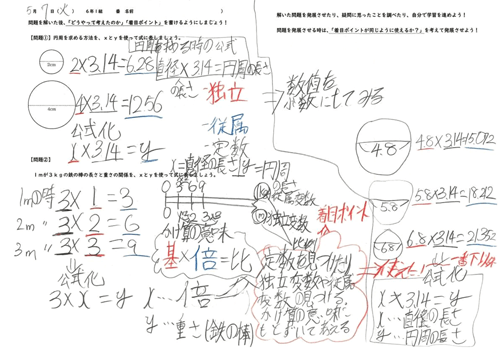 5月7日(火) 6年1組 番 名前
問題を解いた後、「どうやって考えたのか」「着目ポイント」を書けるようにしましょう!
【問題①】円周を求める方法を、xとyを使って式に表しましょう。
2cm
2×3.14=6.28
円周を求める時の公式
直径×3.14=円周の長さ
4cm
4×3.14=12.56
公式化
x×3.14=y
長さ…独立
…従属
…定数
x=直径の長さ y=円周
⇒数値を小数にしてみる
【問題②】1mが3kgの鉄の棒の長さと重さの関係を、xとyを使って式に表しましょう。
1mの時 3×1=3
2m 〃 3×2=6
3m 〃 3×3=9
公式化
3×x=y
x…倍
y…重さ(鉄の棒)
0 3 6 9
従属変数
独立変数
かけ算の意味
基×倍=比
着目ポイント
定数を見つけたり
独立変数や従属
変数の見つける。
かけ算の意味に
もとずいて考える
解いた問題を発展させたり、疑問に思ったことを調べたり、自分で学習を進めよう!
問題を発展させる時は、「着目ポイントが同じように使えるか?」を考えて発展させよう!
4.8
4.8×3.14=15.072
5.8
5.8×3.14=18.212
6.8
6.8×3.14=21.352
使えた!
公式化
x×3.14=y
x…直径の長さ
y…円周の長さ